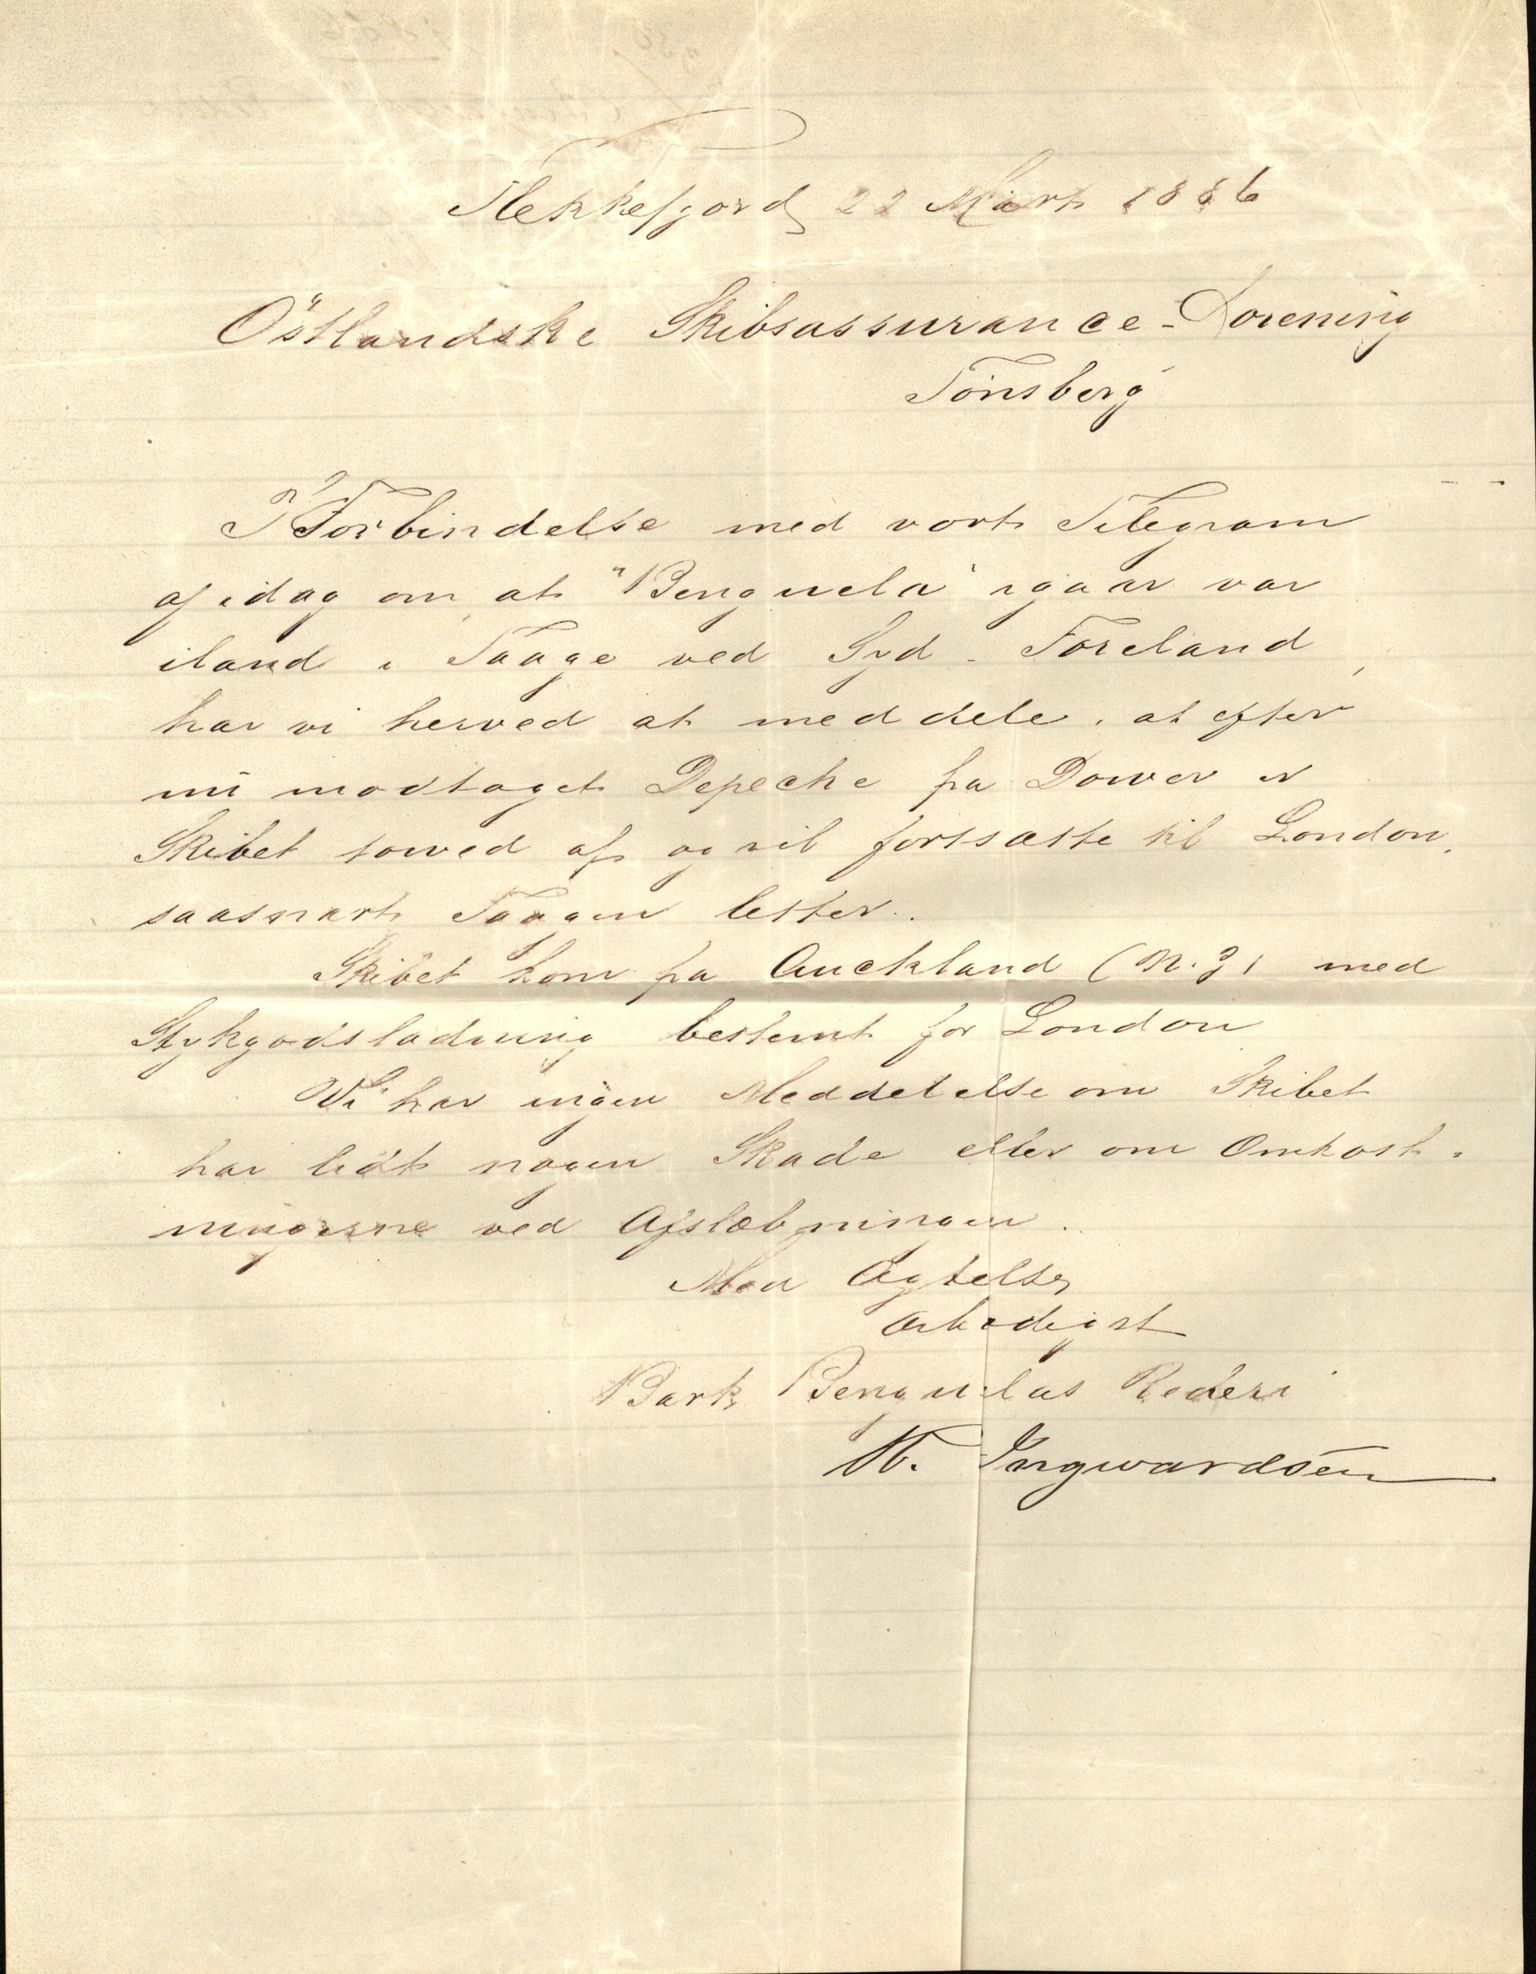 Flekkefjord 22 Marts 1886
Östlandske Skibsassurance-Forening
Tönsberg
I Forbindelse med vort Telegram
af idag om at "Benguela" igaar var
iland i Taage ved Syd-Foreland,
har vi herved at meddele, at efter
nu modtaget Depeche fra Dower er
Skibet towed af og vil fortsætte til London,
saasnart Taagen letter.
Skibet kom fra Auckland (N.Z) med
Stykgodsladning bestemt for London
Vi har ingen Meddelelse om Skibet
har lidt nogen Skade eller om Omkost-
ningerne ved Afslæbningen.
Med Agtelse
Ærbødigst
Bark Benguelas Rederi
Ingwardsen